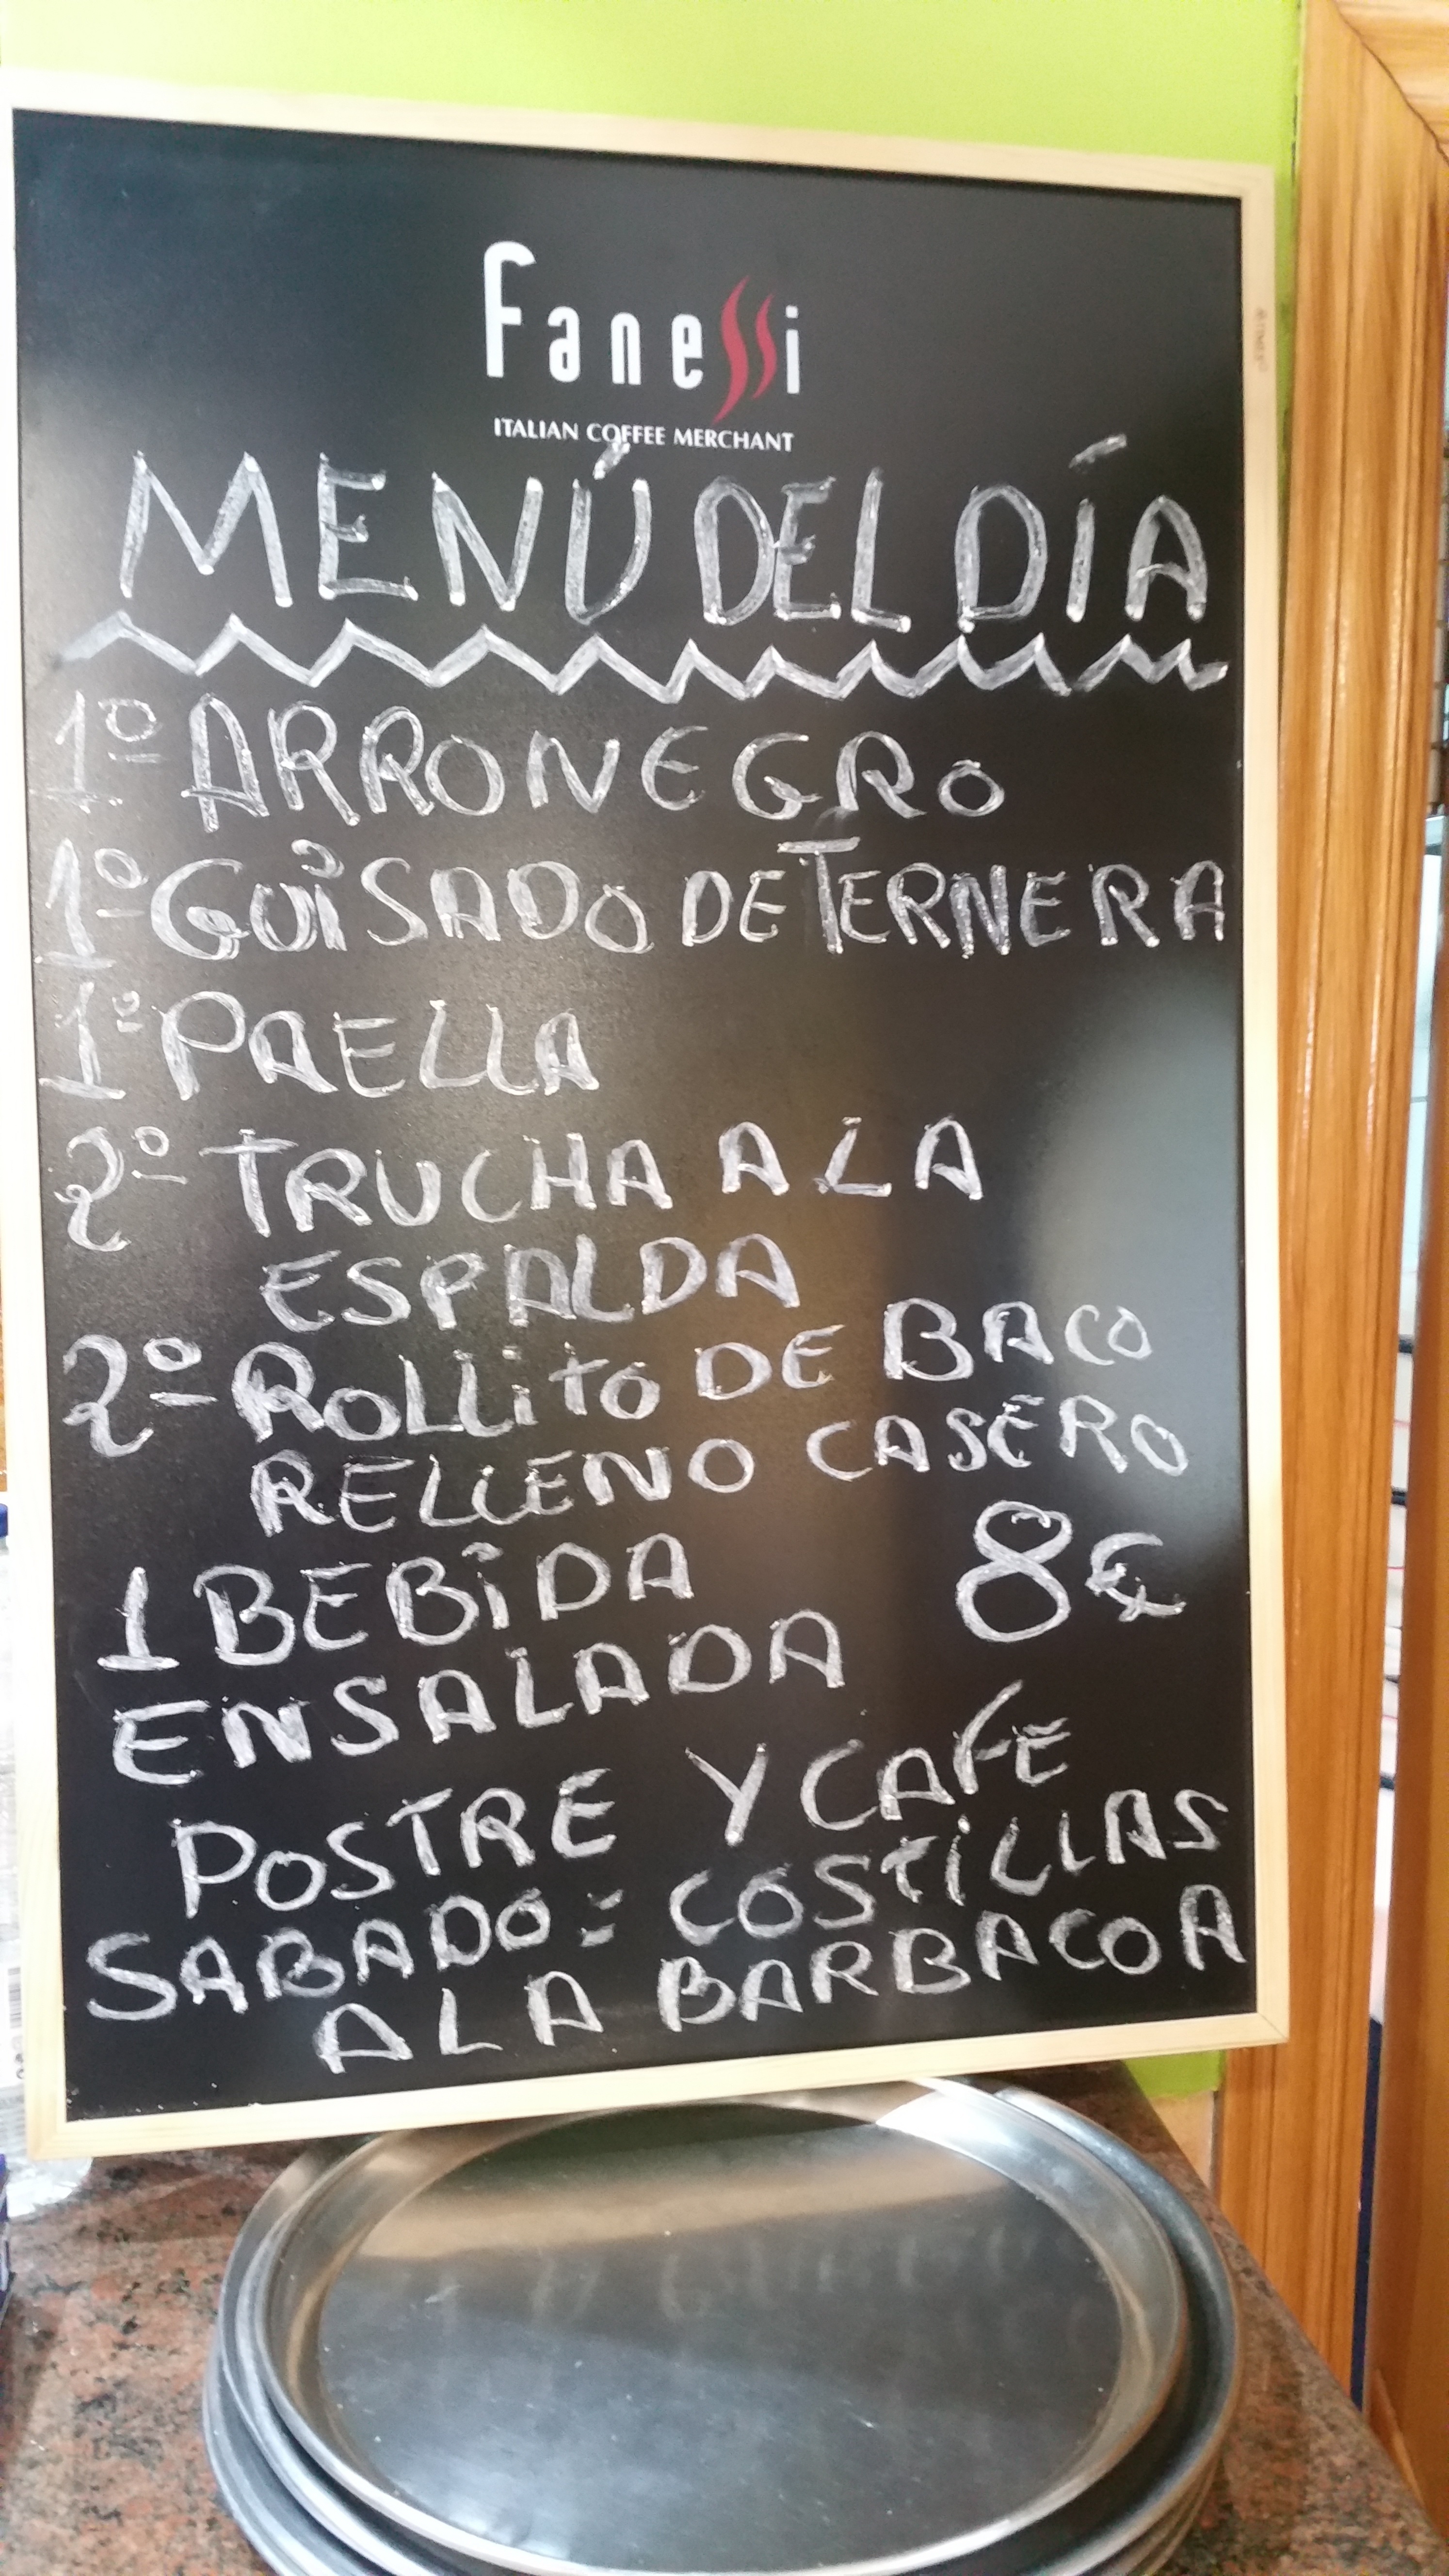 Fanessi
ITALIAN COFFEE MERCHANT
MENÚ DEL DÍA
1º ARRONEGRO
1º GUISADO DE TERNERA
1º PAELLA
2º TRUCHA A LA
ESPALDA
2º ROLLITO DE BACO
RELLENO CASERO
1 BEBIDA 8€
ENSALADA
POSTRE Y CAFE
SABADO: COSTILLAS
A LA BARBACOA